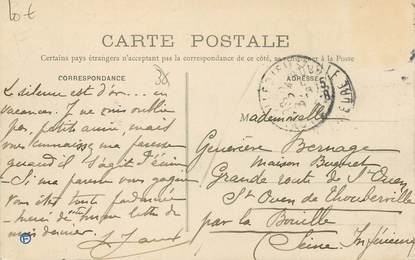 10 €
CARTE POSTALE
Certains pays étrangers n'acceptant pas la correspondance de ce côté, se renseigner à la Poste
38
CORRESPONDANCE
ADRESSE
Le silence est d'or... en
vacances. Je ne vous oublie
pas, petite amie, mais
vous connaissez ma paresse
quand il s'agit d'écrire
- Si ma paresse vous gagne
vous êtes toute pardonnée
- Merci de votre longue lettre du
mois dernier.
Mademoiselle
Geneviève Bernage
Maison Buquet
Grande route de St Ouen
St Ouen de Thouberville
par la Bouille
(Seine Inférieure)